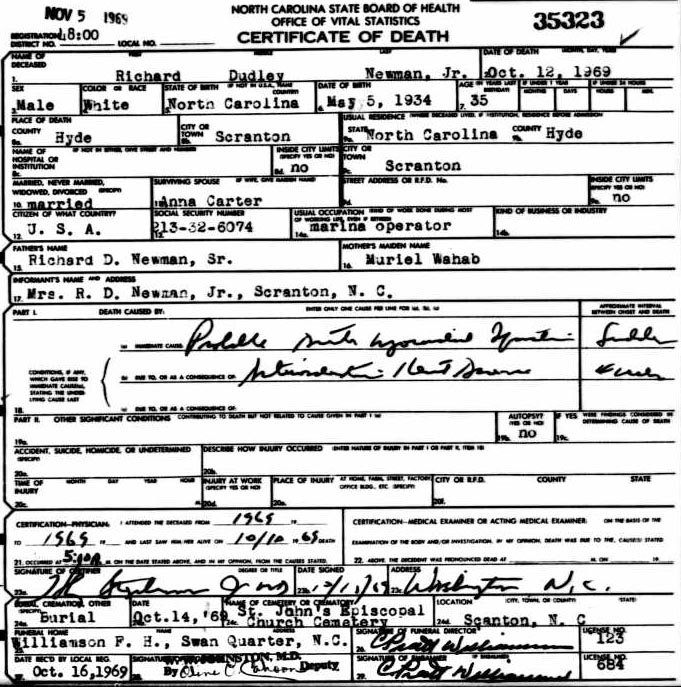 NOV 5 1969
NORTH CAROLINA STATE BOARD OF HEALTH
OFFICE OF VITAL STATISTICS
CERTIFICATE OF DEATH
35323
REGISTRATION DISTRICT NO. 48:00 LOCAL NO.
NAME OF DECEASED FIRST MIDDLE LAST DATE OF DEATH MONTH, DAY, YEAR
1. Richard Dudley Newman, Jr. 2. Oct. 12, 1969
SEX COLOR OR RACE STATE OF BIRTH (IF NOT IN U.S.A., NAME COUNTRY) DATE OF BIRTH AGE IF UNDER 1 YEAR IF UNDER 24 HOURS
MONTHS DAYS HOURS MIN.
Male White North Carolina May 5, 1934 7. 35
PLACE OF DEATH USUAL RESIDENCE (WHERE DECEASED LIVED, IF INSTITUTION, RESIDENCE BEFORE ADMISSION)
COUNTY Hyde CITY OR TOWN Scranton STATE North Carolina COUNTY Hyde
NAME OF HOSPITAL OR INSTITUTION (IF NOT IN EITHER, GIVE STREET AND NUMBER) INSIDE CITY LIMITS (SPECIFY YES OR NO) no CITY OR TOWN Scranton
MARRIED, NEVER MARRIED, WIDOWED, DIVORCED (SPECIFY) SURVIVING SPOUSE (IF WIFE, GIVE MAIDEN NAME) STREET ADDRESS OR R.F.D. No. INSIDE CITY LIMITS (SPECIFY YES OR NO)
10. married Anna Carter no
CITIZEN OF WHAT COUNTRY? SOCIAL SECURITY NUMBER USUAL OCCUPATION (KIND OF WORK DONE DURING MOST OF WORKING LIFE, EVEN IF RETIRED) KIND OF BUSINESS OR INDUSTRY
12. U. S. A. 213-32-6074 14a. marina operator 14b.
FATHER'S NAME MOTHER'S MAIDEN NAME
15. Richard D. Newman, Sr. 16. Muriel Wahab
INFORMANT'S NAME AND ADDRESS
17. Mrs. R. D. Newman, Jr., Scranton, N. C.
PART I. DEATH CAUSED BY: ENTER ONLY ONE CAUSE PER LINE FOR (a), (b), (c) APPROXIMATE INTERVAL BETWEEN ONSET AND DEATH
(a) IMMEDIATE CAUSE
CONDITIONS, IF ANY, WHICH GAVE RISE TO IMMEDIATE CAUSE(a), STATING THE UNDERLYING CAUSE LAST
(b) DUE TO, OR AS A CONSEQUENCE OF: Heart Disease
18. (c) DUE TO, OR AS A CONSEQUENCE OF:
PART II. OTHER SIGNIFICANT CONDITIONS CONTRIBUTING TO DEATH BUT NOT RELATED TO CAUSE GIVEN IN PART I (a) AUTOPSY? (YES OR NO) IF YES WERE FINDINGS CONSIDERED IN DETERMINING CAUSE OF DEATH
19a. 19b. no 19c.
ACCIDENT, SUICIDE, HOMICIDE, OR UNDETERMINED (SPECIFY) DESCRIBE HOW INJURY OCCURRED (ENTER NATURE OF INJURY IN PART I OR PART II, ITEM 18)
20a. 20b.
TIME OF INJURY MONTH DAY YEAR HOUR INJURY AT WORK (SPECIFY YES OR NO) PLACE OF INJURY AT HOME, FARM, STREET, FACTORY, OFFICE BLDG., ETC. (SPECIFY) CITY OR R.F.D. COUNTY STATE
20c. 20d. 20e. 20f.
CERTIFICATION—PHYSICIAN: I ATTENDED THE DECEASED FROM 1969 19 CERTIFICATION—MEDICAL EXAMINER OR ACTING MEDICAL EXAMINER: ON THE BASIS OF THE
TO 1969 19 AND LAST SAW HIM/HER ALIVE ON 10/10 1969 DEATH EXAMINATION OF THE BODY AND/OR INVESTIGATION, IN MY OPINION, DEATH WAS DUE TO THE CAUSE(S) STATED
21. OCCURRED AT M. ON THE DATE STATED ABOVE, AND IN MY OPINION, FROM THE CAUSES STATED. 22. ABOVE. THE DECEDENT WAS PRONOUNCED DEAD AT M. ON 19
SIGNATURE OF CERTIFIER DEGREE OR TITLE DATE SIGNED ADDRESS
23a. Washington N.C.
BURIAL, CREMATION, OTHER (SPECIFY) DATE NAME OF CEMETERY OR CREMATORY LOCATION (CITY, TOWN, OR COUNTY) (STATE)
24a. Burial Oct.14, '69 St. John's Episcopal Church Cemetery 24d. Scanton, N. C
FUNERAL HOME NAME ADDRESS SIGNATURE OF FUNERAL DIRECTOR LICENSE NO.
Williamson F. H., Swan Quarter, N.C. 26. C Pratt Williamson 123
DATE REC'D BY LOCAL REG. SIGNATURE OF EMBALMER LICENSE NO.
Oct. 16, 1969 M.D. By Deputy 29. C Pratt Williamson 684